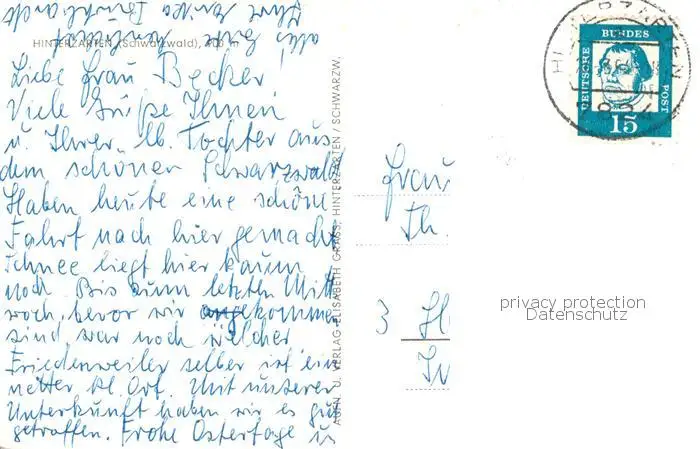 HINTERZARTEN (Schwarzwald), 900 m
Liebe Frau Becker
Viele Grüße Ihnen
u. Ihrer lb. Tochter aus
dem schönen Schwarzwald
Haben heute eine schöne
Fahrt nach hier gemacht
Schnee liegt hier kaum
noch. Bis zum letzten Mitt
woch, bevor wir angekommen
sind, war noch welcher
Friedenweiler selber ist ein
netter kl. Ort. Mit unserer
Unterkunft haben wir es gut
getroffen. Frohe Ostertage u
alles Gute
Ihre
AUFN. U. VERLAG ELISABETH GRASS, HINTERZARTEN / SCHWARZW.
HINTERZARTEN
DEUTSCHE BUNDESPOST
15
Frau
Th.
3 H
privacy protection
Datenschutz